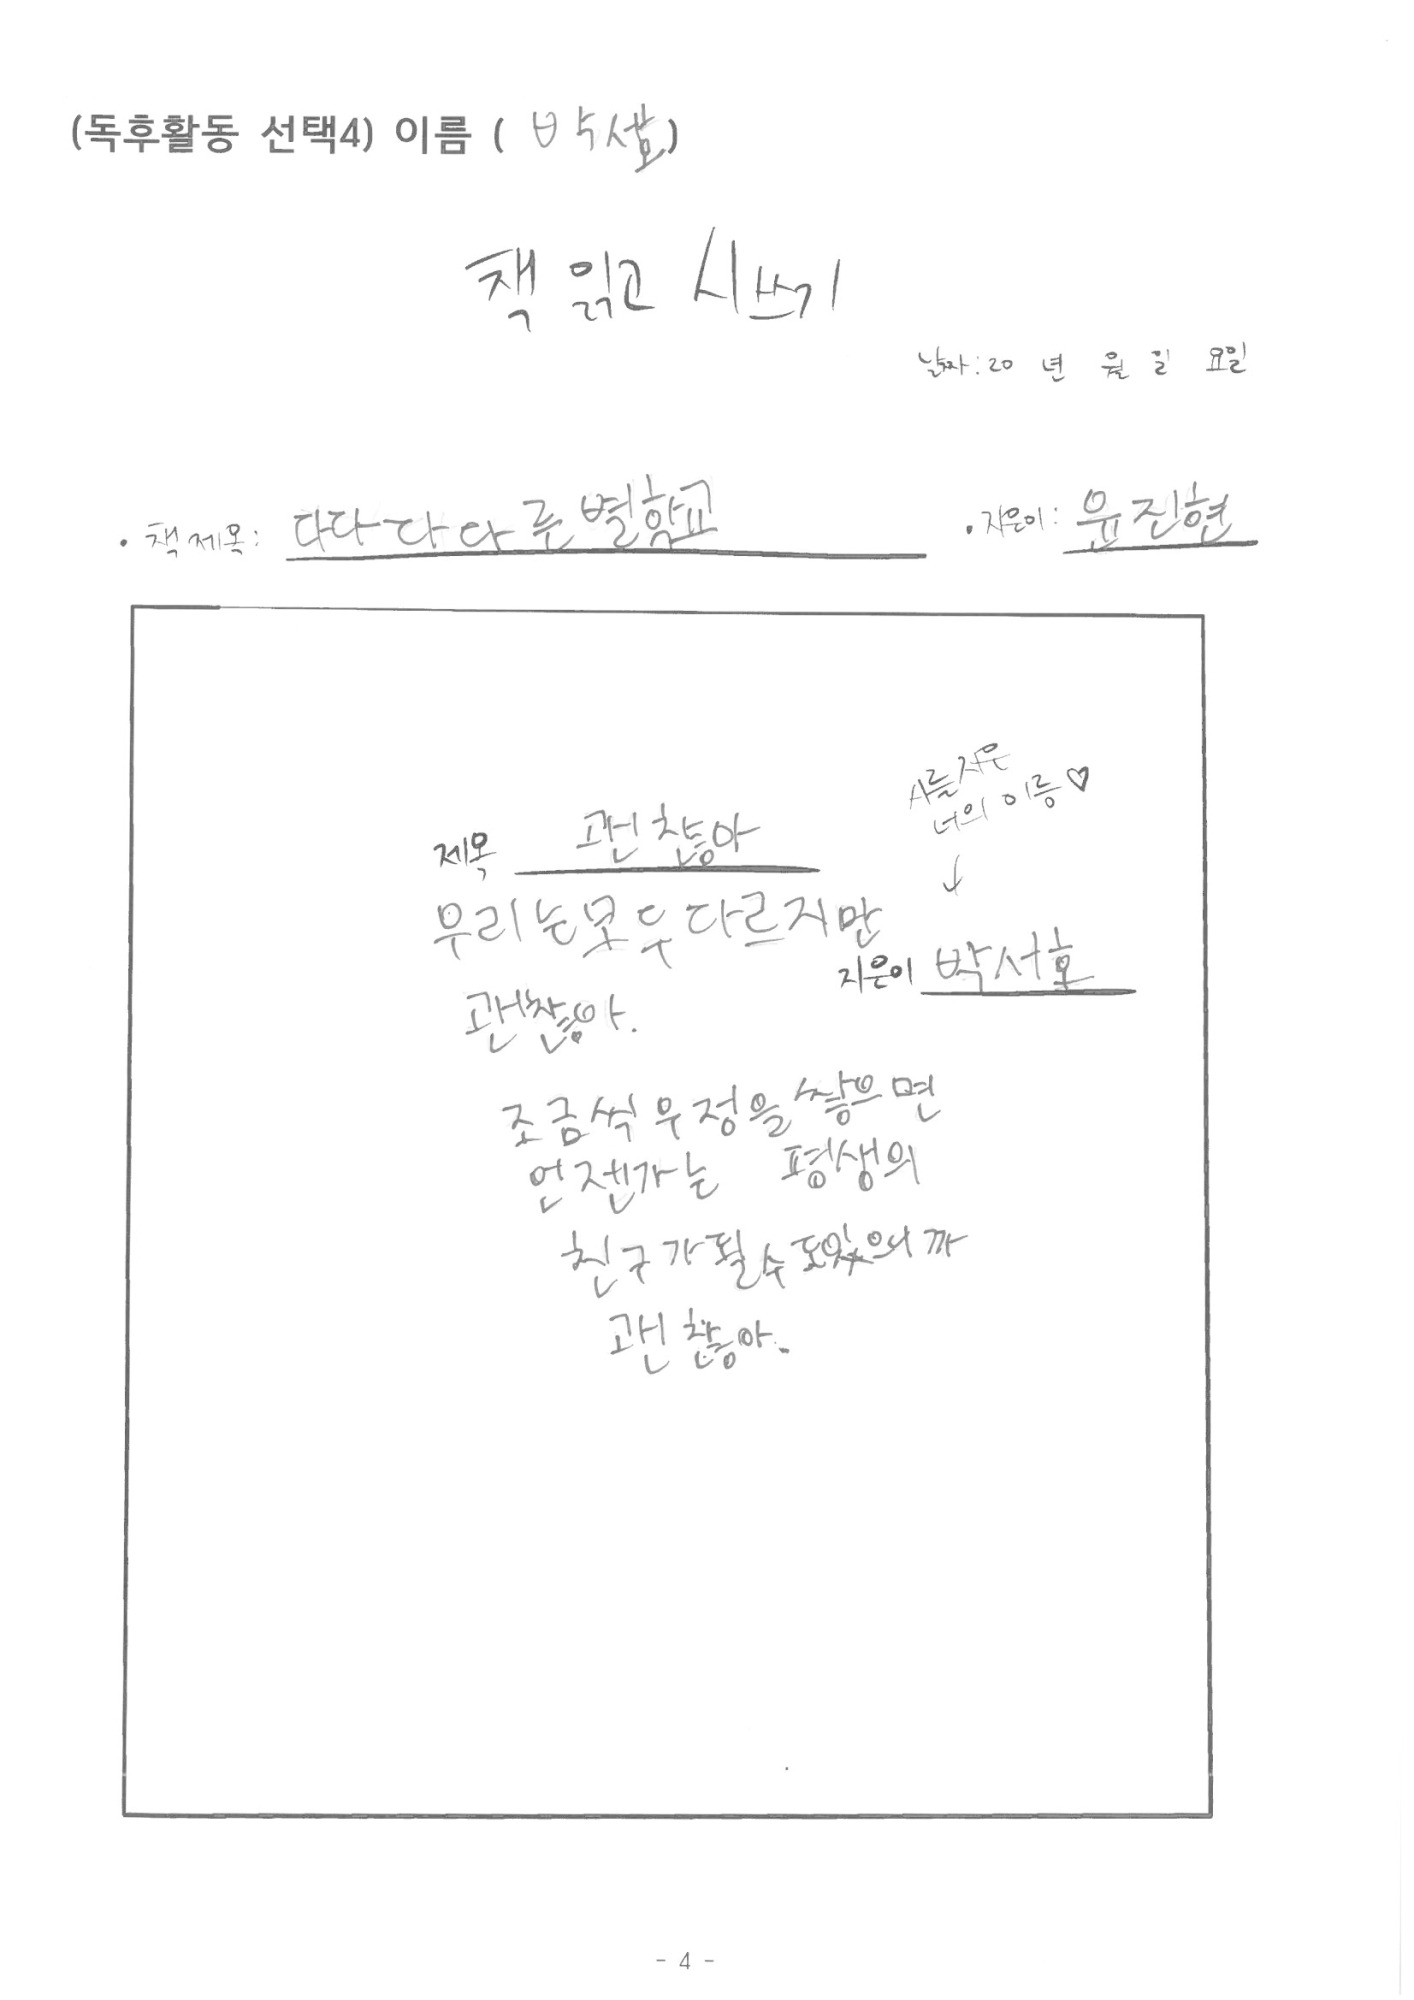 (독후활동 선택4) 이름 ( 박서호)
책 읽고 시쓰기
날짜:20 년 월 일 요일
• 책 제목: 다다다다른별학교 • 지은이: 윤진현
시를지은
너의 이름♡
↓
제목 괜찮아
우리는모두다르지만
지은이 박서호
괜찮아.
조금씩우정을쌓으면
언젠가는 평생의
친구가될수도있으니까
괜찮아.
- 4 -